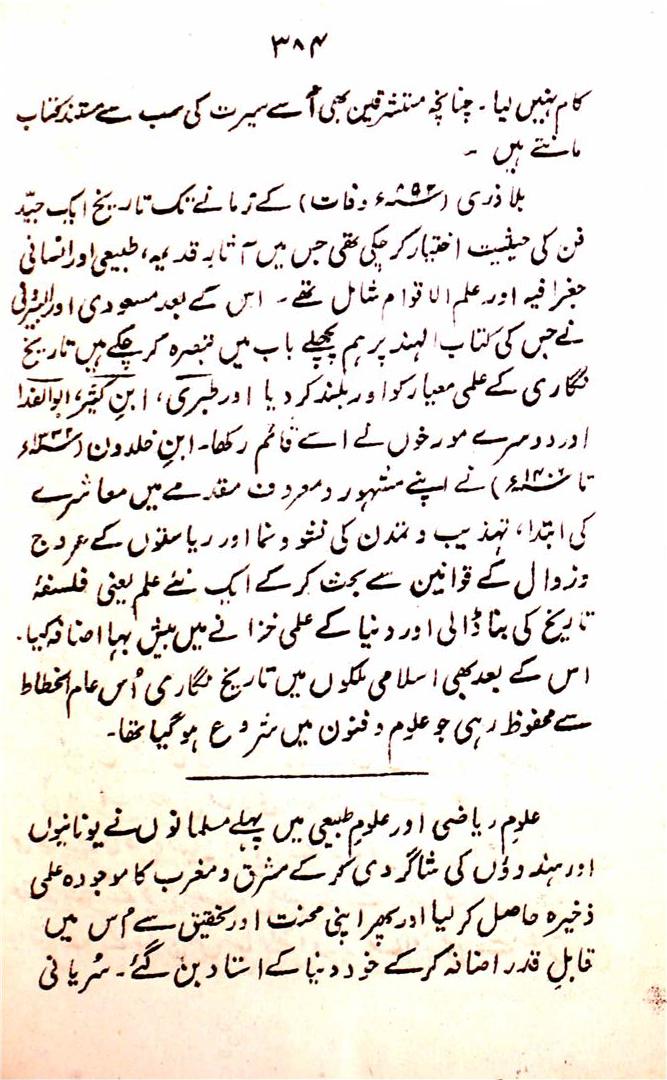 ۳۸۴
کام نہیں لیا۔ چنانچہ مستشرقین بھی اُسے سیرت کی سب سے مستند کتاب
مانتے ہیں۔
بلاذری (۸۹۲ء وفات) کے زمانے تک تاریخ ایک جیّد
فن کی حیثیت اختیار کرچکی تھی جس میں آثارِ قدیمہ، طبیعی اور انسانی
جغرافیہ اور علم الاقوام شامل تھے۔ اس کے بعد مسعودی اور البیرونی
نے جس کی کتاب الہند پر ہم پچھلے باب میں تبصرہ کرچکے ہیں تاریخ
نگاری کے علمی معیار کو اور بلند کر دیا اور طبری، ابنِ کثیر، ابوالفدا
اور دوسرے مورخوں نے اسے قائم رکھا۔ ابنِ خلدون (۱۳۳۲ء
تا ۱۴۰۶ء) نے اپنے مشہور و معروف مقدمے میں معاشرے
کی ابتدا، تہذیب و تمدن کی نشوونما اور ریاستوں کے عروج
و زوال کے قوانین سے بحث کرکے ایک نئے علم یعنی فلسفۂ
تاریخ کی بنا ڈالی اور دنیا کے علمی خزانے میں بیش بہا اضافہ کیا۔
اس کے بعد بھی اسلامی ملکوں میں تاریخ نگاری اُس عام انحطاط
سے محفوظ رہی جو علوم و فنون میں شروع ہوگیا تھا۔
علومِ ریاضی اور علومِ طبیعی میں پہلے مسلمانوں نے یونانیوں
اور ہندوؤں کی شاگردی کرکے مشرق و مغرب کا موجودہ علمی
ذخیرہ حاصل کرلیا اور پھر اپنی محنت اور تحقیق سے اس میں
قابلِ قدر اضافہ کرکے خود دنیا کے استاد بن گئے۔ سُریانی